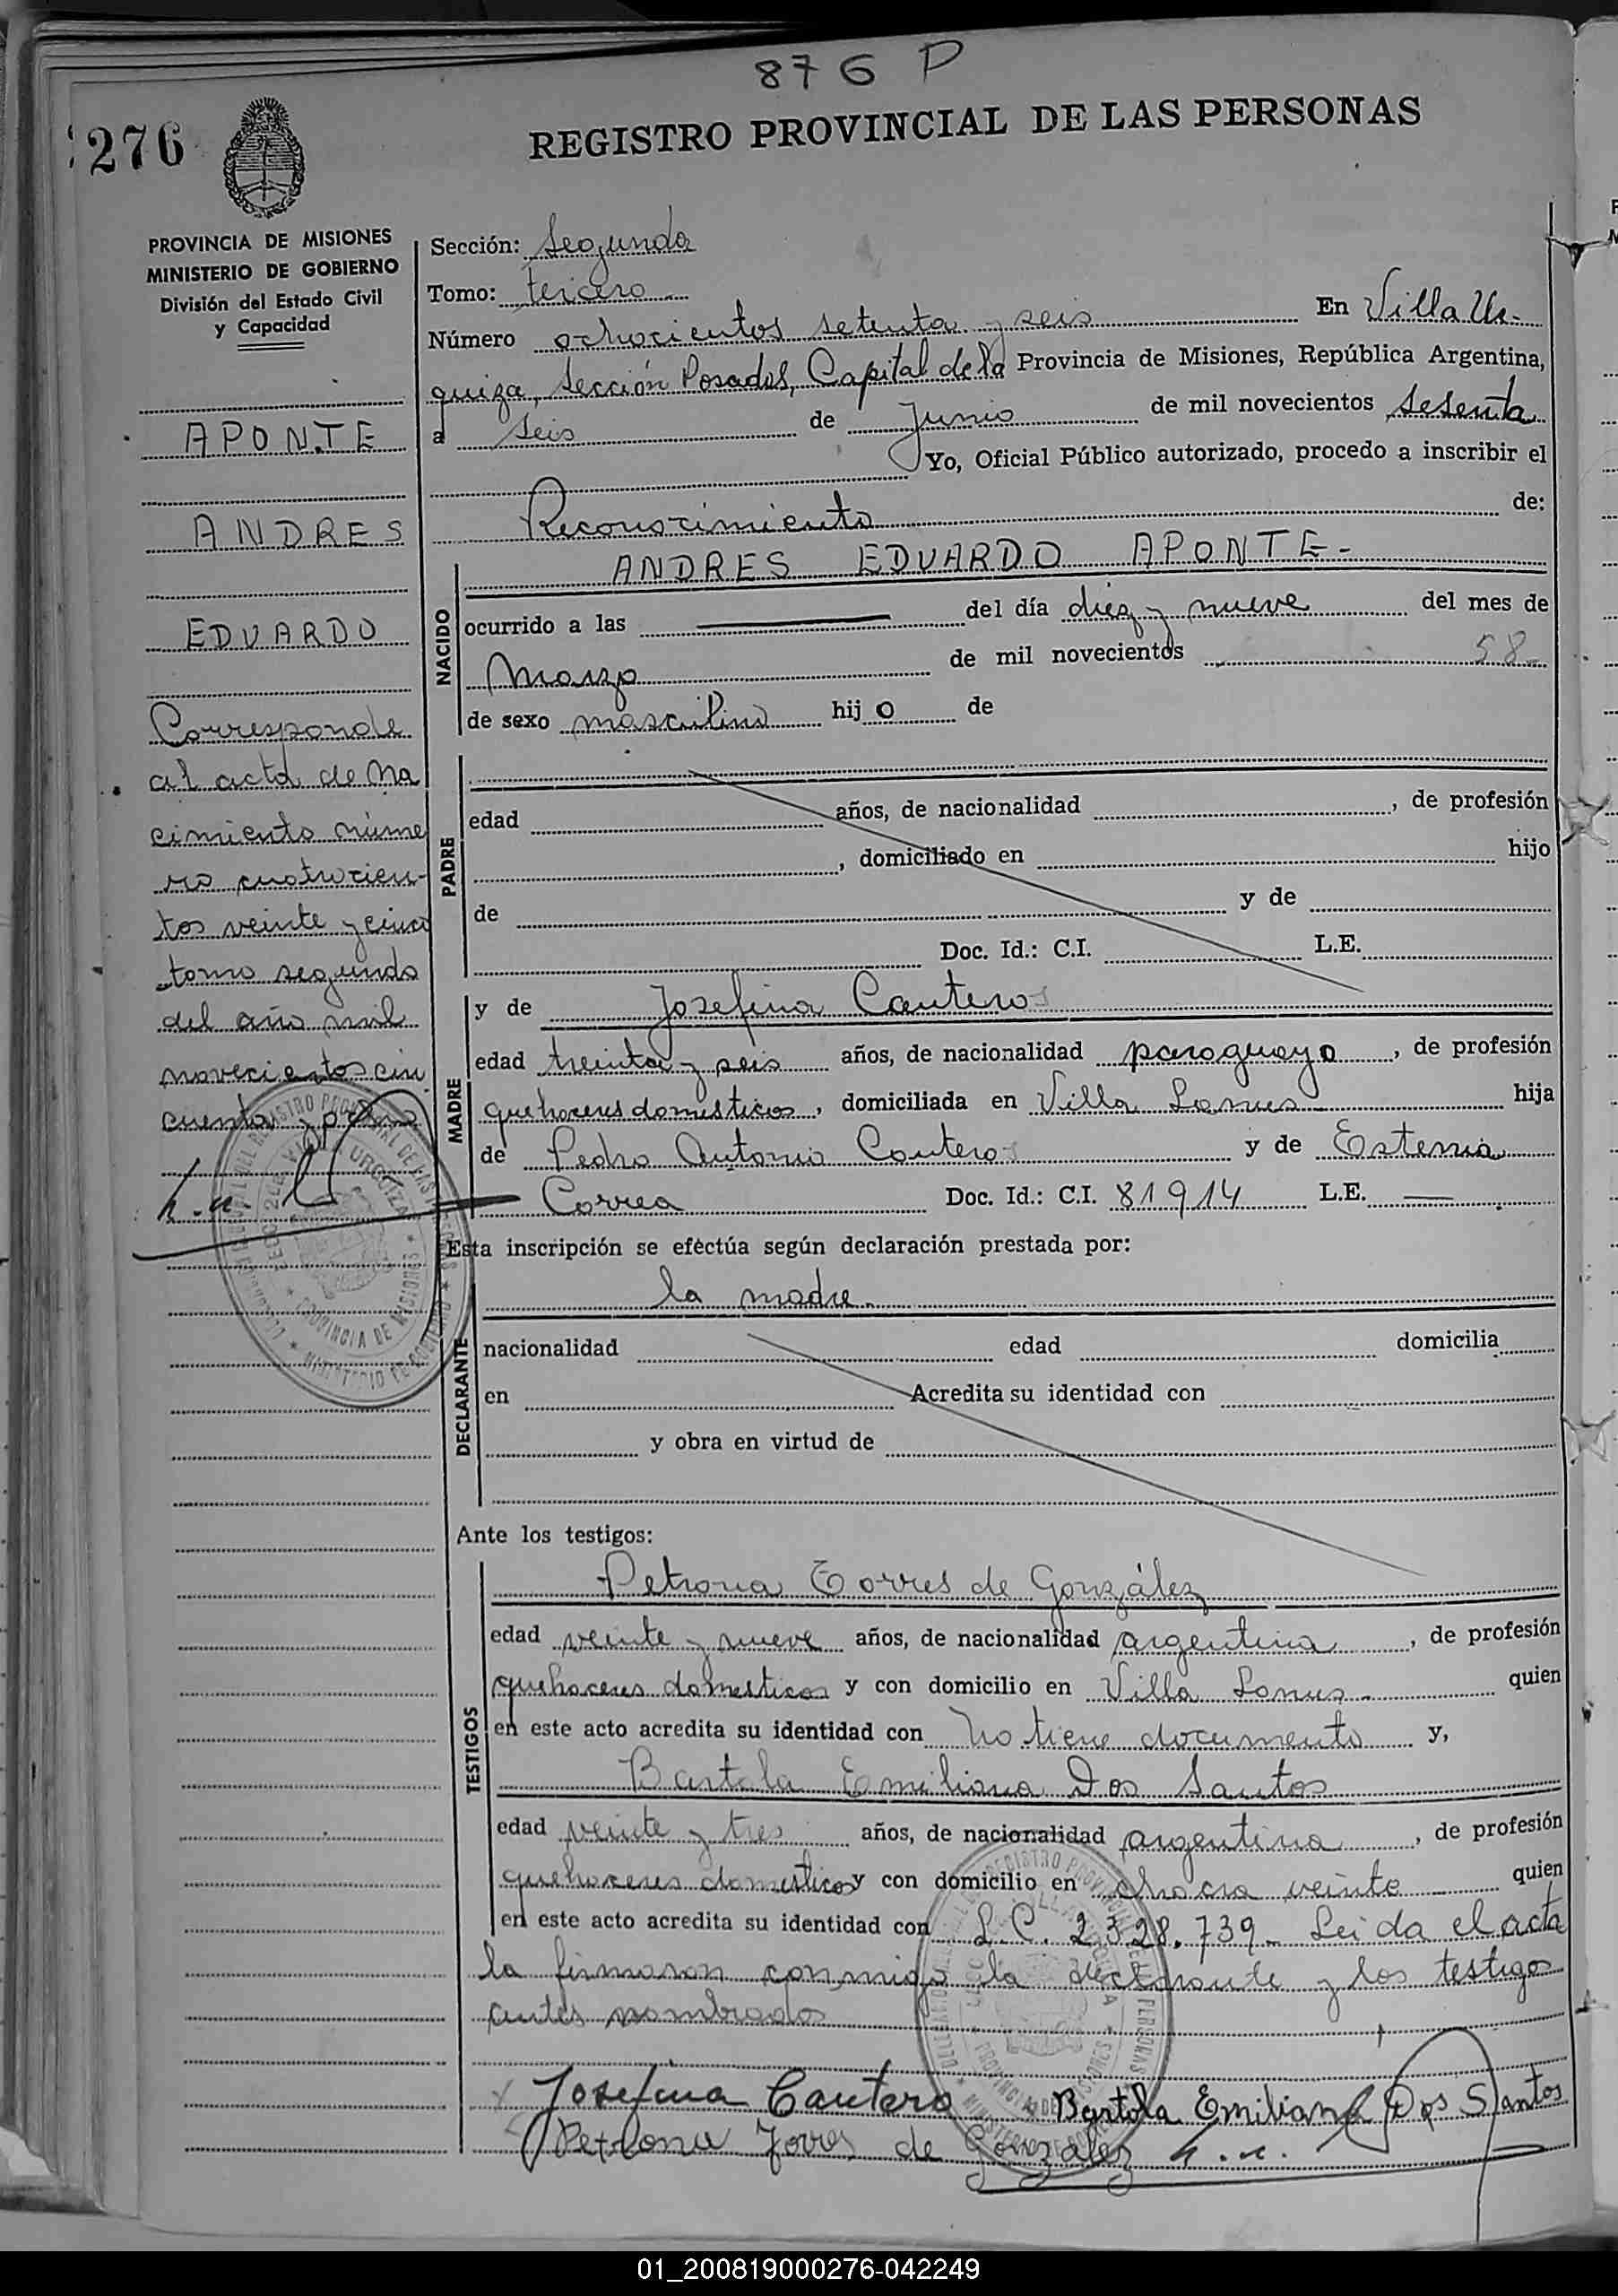 876 P
276
REGISTRO PROVINCIAL DE LAS PERSONAS
PROVINCIA DE MISIONES
MINISTERIO DE GOBIERNO
División del Estado Civil
y Capacidad
APONTE
ANDRES
EDUARDO
Corresponde
al acta de Na
cimiento núme
ro cuatrocien-
tos veinte y cinco
tomo segundo
del año mil
novecientos cin
cuenta y ocho
Sección: Segunda
Tomo: tercero
Número ochocientos setenta y seis En Villa Ur-
quiza, Sección Posadas, Capital de la Provincia de Misiones, República Argentina,
a seis de Junio de mil novecientos sesenta
Yo, Oficial Público autorizado, procedo a inscribir el
Reconocimiento de:
NACIDO
ANDRES EDUARDO APONTE-
ocurrido a las — del día diez y nueve del mes de
Marzo de mil novecientos 58-
de sexo masculino hijo de
PADRE
edad años, de nacionalidad , de profesión
, domiciliado en hijo
de y de
Doc. Id.: C.I. L.E.
MADRE
y de Josefina Cantero
edad treinta y seis años, de nacionalidad paraguaya, de profesión
quehaceres domesticos, domiciliada en Villa Lanus hija
de Pedro Antonio Cantero y de Estemia
Correa Doc. Id.: C.I. 81914 L.E. —
Esta inscripción se efectúa según declaración prestada por:
DECLARANTE
la madre.
nacionalidad edad domicilia
en Acredita su identidad con
y obra en virtud de
Ante los testigos:
TESTIGOS
Petrona Torres de González
edad veinte y nueve años, de nacionalidad argentina, de profesión
quehaceres domesticos y con domicilio en Villa Lanus- quien
en este acto acredita su identidad con no tiene documento y,
Bartola Emiliana Dos Santos
edad veinte y tres años, de nacionalidad argentina, de profesión
quehaceres domesticos y con domicilio en chacra veinte quien
en este acto acredita su identidad con L.C. 2.328.739- Leida el acta
la firmaron conmigo la declarante y los testigos
antes nombrados
Josefina Cantero Bartola Emiliana Dos Santos
Petrona Torres de Gonzalez
01_200819000276-042249